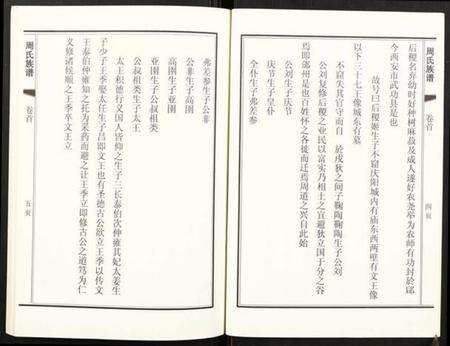 周氏族谱
卷首
四页
后稷名弃幼时好种树麻菽及成人遂好农尧举为农师有功封於邰
今西安市武功县是也
故号曰后稷姬生子不窋庆阳城内有庙东西两壁有文王像
以下三十七王像城东有墓
不窋失其官守而自
於戎狄之间子鞠陶鞠陶生子公刘
公刘复修后稷之业民以富实乃相土之宜避狄立国于分之谷
焉即邠州是也百姓怀之各徙而迁焉周道之兴自此始
公刘生子庆节
庆节生子皇仆
全仆生子弗差参
弗差参生子公非
公非生子高圉
高圉生子亚圉
亚圉生子公叔祖类
公叔祖类生子太王
太王积德行义国人皆仰之生子三长泰伯次仲雍其妃太姜生
子少子王季娶太任生子昌即文王也有圣德古公欲立王季以传文
王泰伯仲雍知之托为采药而避之让王季立即修古公之道笃为仁
义修诸候顺之王季卒文王立
周氏族谱
卷首
五页